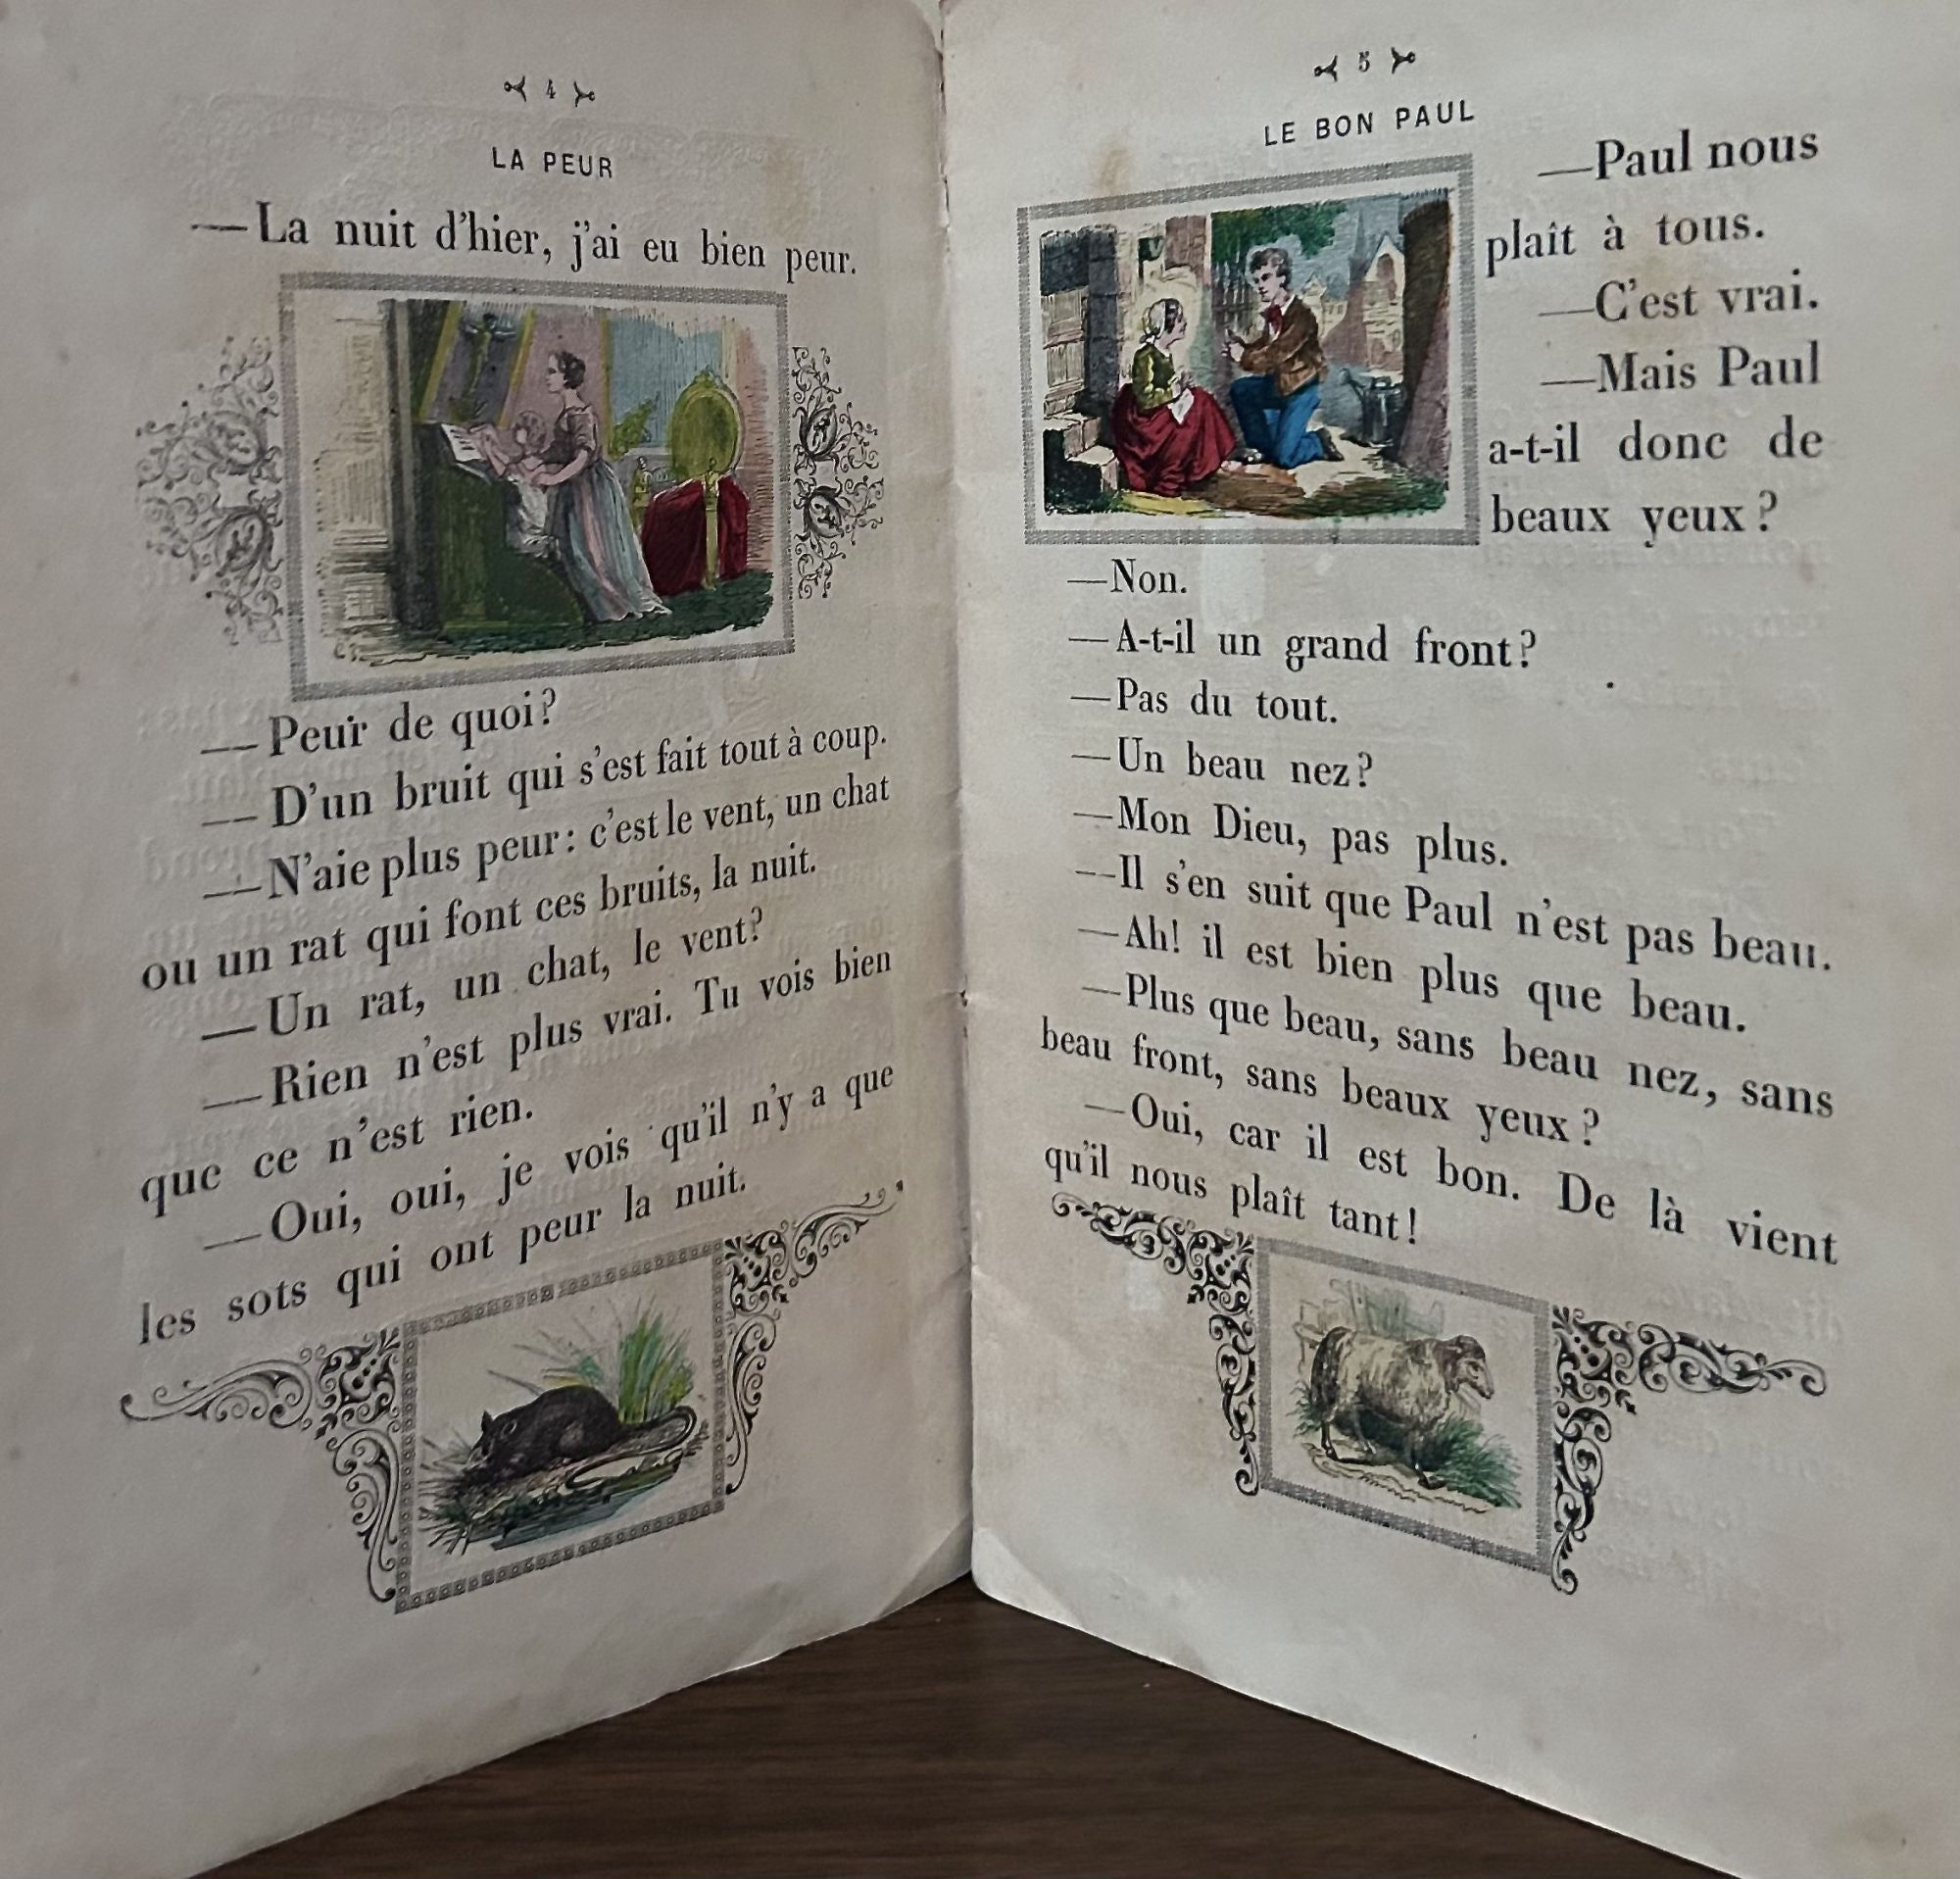 4
LA PEUR
—La nuit d'hier, j'ai eu bien peur.
—Peur de quoi?
—D'un bruit qui s'est fait tout à coup.
—N'aie plus peur: c'est le vent, un chat
ou un rat qui font ces bruits, la nuit.
—Un rat, un chat, le vent?
—Rien n'est plus vrai. Tu vois bien
que ce n'est rien.
—Oui, oui, je vois qu'il n'y a que
les sots qui ont peur la nuit.
5
LE BON PAUL
—Paul nous
plaît à tous.
—C'est vrai.
—Mais Paul
a-t-il donc de
beaux yeux?
—Non.
—A-t-il un grand front?
—Pas du tout.
—Un beau nez?
—Mon Dieu, pas plus.
—Il s'en suit que Paul n'est pas beau.
—Ah! il est bien plus que beau.
—Plus que beau, sans beau nez, sans
beau front, sans beaux yeux?
—Oui, car il est bon. De là vient
qu'il nous plaît tant!